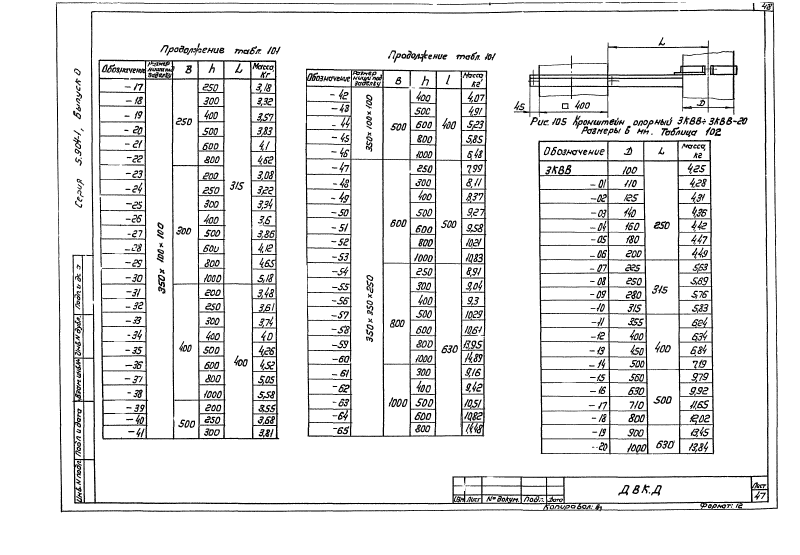 48
Серия 5.904-1, Выпуск 0
Продолжение табл. 101
Обозначение Размер ниши под заделку B h L Масса, кг
350×100×100
-17 250 250 315 3,18
-18 300 3,32
-19 400 3,57
-20 500 3,83
-21 600 4,1
-22 800 4,62
-23 300 200 3,08
-24 250 3,22
-25 300 3,34
-26 400 3,6
-27 500 3,86
-28 600 4,12
-29 800 4,65
-30 1000 5,18
-31 400 200 400 3,48
-32 250 3,61
-33 300 3,74
-34 400 4,0
-35 500 4,26
-36 600 4,52
-37 800 5,05
-38 1000 5,58
-39 500 200 3,55
-40 250 3,68
-41 300 3,81
Продолжение табл. 101
Обозначение Размер ниши под заделку B h l Масса, кг
350×100×100
-42 500 400 400 4,07
-43 500 4,91
-44 600 5,23
-45 800 5,85
-46 1000 6,48
350×350×250
-47 600 250 500 7,99
-48 300 8,11
-49 400 8,37
-50 500 9,27
-51 600 9,58
-52 800 10,21
-53 1000 10,83
-54 800 250 630 8,91
-55 300 9,04
-56 400 9,3
-57 500 10,29
-58 600 10,61
-59 800 13,95
-60 1000 14,89
-61 1000 300 9,16
-62 400 9,42
-63 500 10,51
-64 600 10,82
-65 800 14,48
L
45
□ 400
D
Рис. 105 Кронштейн опорный 3КВВ÷3КВВ-20
Размеры в мм. Таблица 102
Обозначение D L Масса, кг
3КВВ 100 250 4,25
-01 110 4,28
-02 125 4,31
-03 140 4,36
-04 160 4,42
-05 180 4,47
-06 200 4,49
-07 225 315 5,63
-08 250 5,69
-09 280 5,76
-10 315 5,83
-11 355 400 6,24
-12 400 6,34
-13 450 6,84
-14 500 7,19
-15 560 500 9,79
-16 630 9,92
-17 710 11,65
-18 800 12,02
-19 900 630 13,45
-20 1000 13,84
Инв. № подл. Подп. и дата Взам. инв. № Инв. № дубл. Подп. и дата
Изм. Лист № докум. Подп. Дата
ДВК.Д
Лист
47
Копировал:
Формат: 12